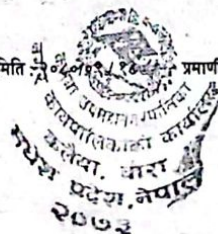 मिति : २०८०।१९।१६ प्रमाणी
कलैया उपमहानगरपालिका
कार्यपालिकाको कार्यालय
कलैया, बारा
मधेश प्रदेश, नेपाल
२०७३